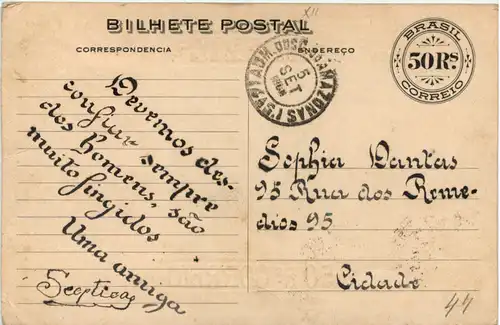 XII
BILHETE POSTAL
CORRESPONDENCIA
ENDEREÇO
BRASIL
50 RS
CORREIO
5
SET
Devemos des-
confiar sempre
dos homens, são
muito fingidos
Uma amiga
Sceptica
Sophia Dantas
95 Rua dos Reme-
dios 95
Cidade
44